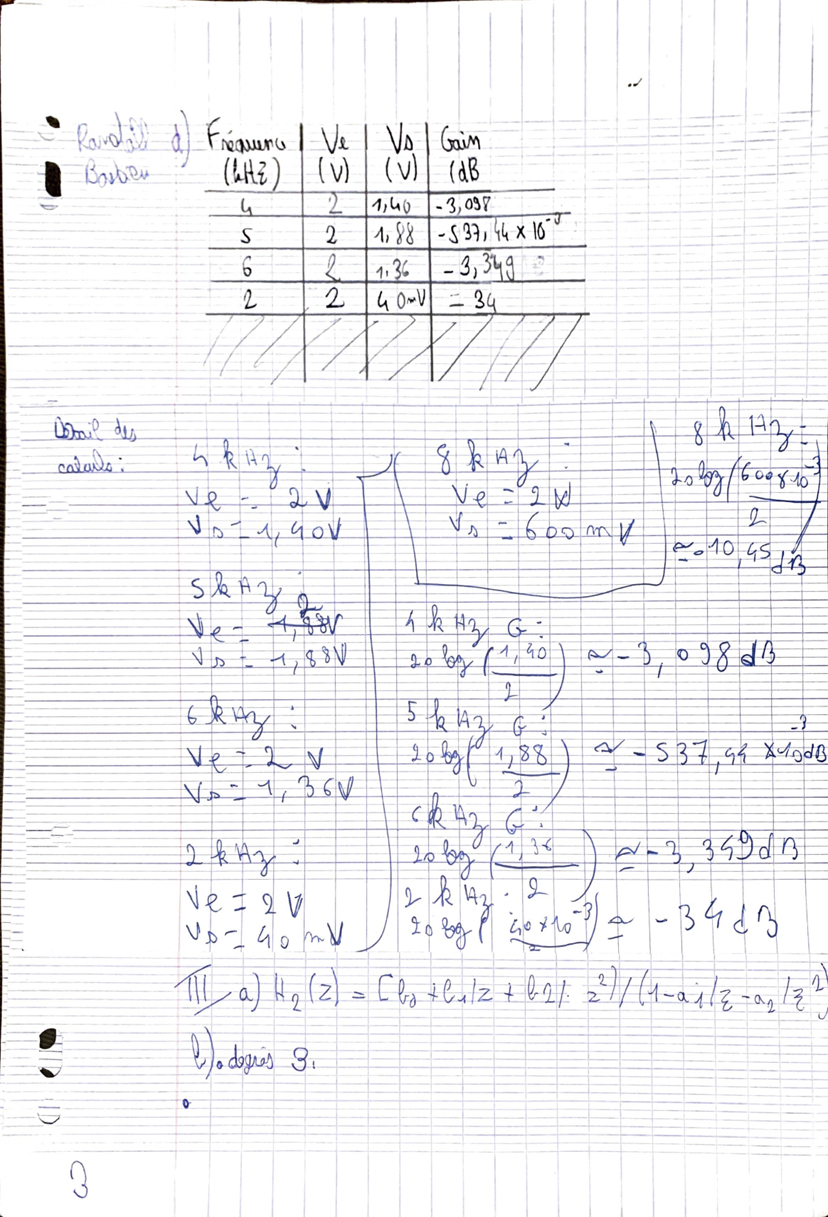 d) Fréquence | Ve | Vs | Gain
(kHz) | (V) | (V) | (dB
4 | 2 | 1,40 | -3,098
5 | 2 | 1,88 | -537,44 × 10⁻³
6 | 2 | 1.36 | -3,349
2 | 2 | 40mV | = 34
Détail des
calculs :
4 kHz :
Ve = 2 V
Vs = 1,40V
5 kHz :
Ve = 2
Vs = 1,88V
6 kHz :
Ve = 2 V
Vs = 1,36V
2 kHz :
Ve = 2V
Vs = 40 mV
8 kHz :
Ve = 2 V
Vs = 600 mV
8 kHz =
20 log (600×10⁻³
2
≃ -10,45 dB
4 kHz G :
20 log (1,40) ≃ -3,098 dB
2
5 kHz G :
20 log (1,88) ≃ -537,44 ×10⁻³ dB
2
6 kHz G :
20 log (1,36) ≃ -3,349 dB
2
2 kHz :
20 log (40×10⁻³) ≃ -34 dB
2
III a) H₂(z) = [b₀ + b₁/z + b2/z²) / (1-a1/z - a₂/z²)
b) degrés 3.
3